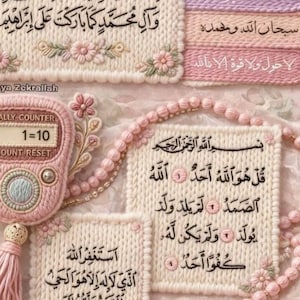 وَآلِ مُحَمَّدٍ كَمَا بَارَكْتَ عَلَى إِبْرَاهِيمَ
سبحان الله وبحمده
لا حول ولا قوة إلا بالله
ya Zekrallah
ALLY-COUNTER
1=10
OUNT RESET
بسم الله الرحمن الرحيم
قُلْ هُوَ اللَّهُ أَحَدٌ ١ اللَّهُ
الصَّمَدُ ٢ لَمْ يَلِدْ وَلَمْ
يُولَدْ ٣ وَلَمْ يَكُن لَّهُ
كُفُوًا أَحَدٌ ٤
أستغفر الله
الذي لا إله إلا هو الحي